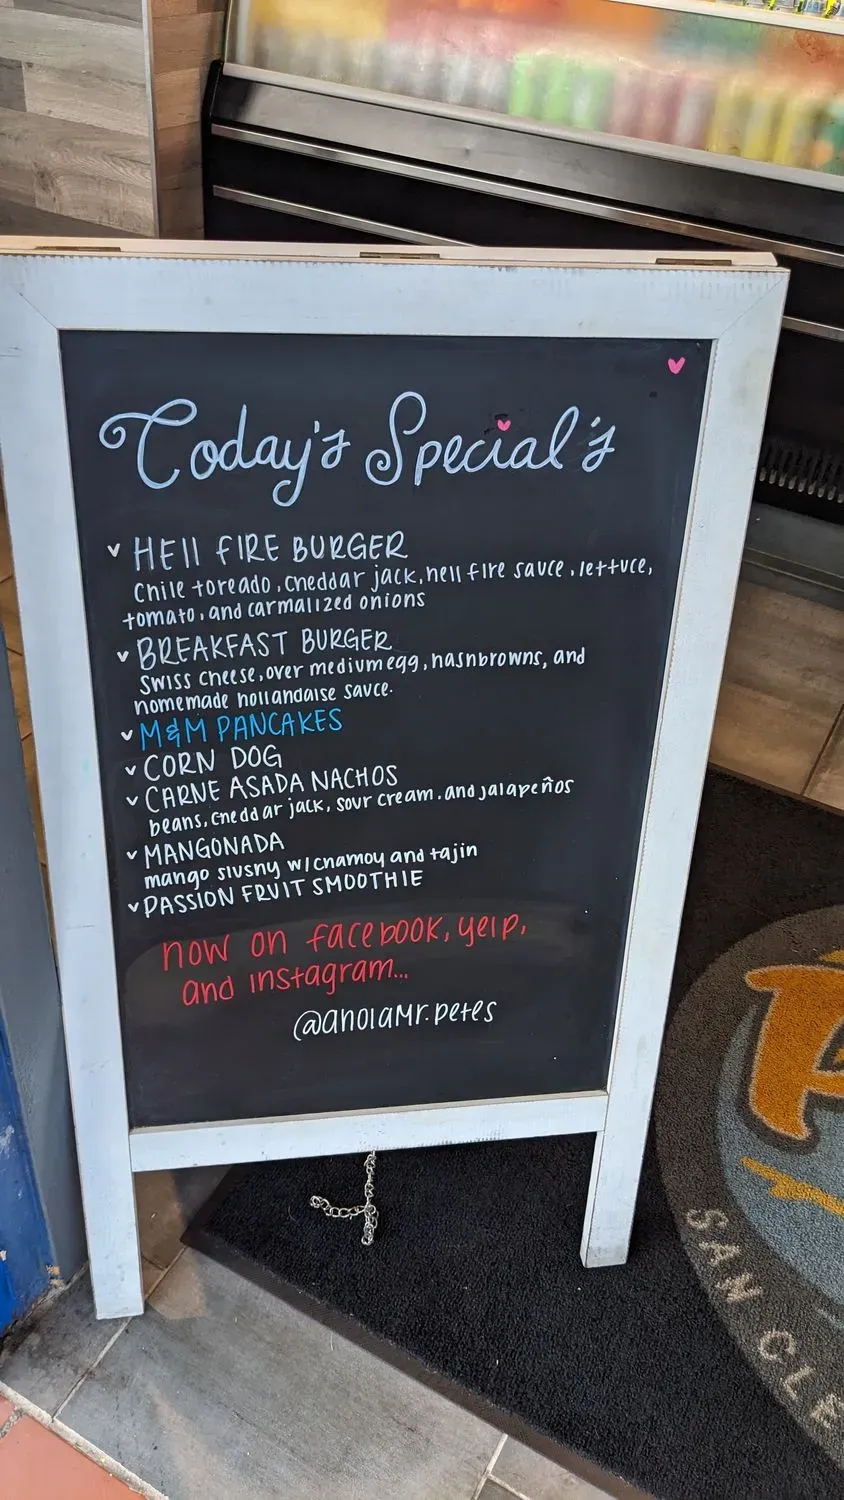 Today's Special's
HEll FIRE BURGER
Chile toreado, cheddar jack, hell fire sauce, lettuce,
tomato, and carmalized onions
BREAKFAST BURGER
Swiss cheese, over medium egg, hashbrowns, and
homemade hollandaise sauce.
M&M PANCAKES
CORN DOG
CARNE ASADA NACHOS
beans, cheddar jack, sour cream, and jalapeños
MANGONADA
mango slushy w/chamoy and tajin
PASSION FRUIT SMOOTHIE
now on facebook, yelp,
and instagram...
SAN CLE